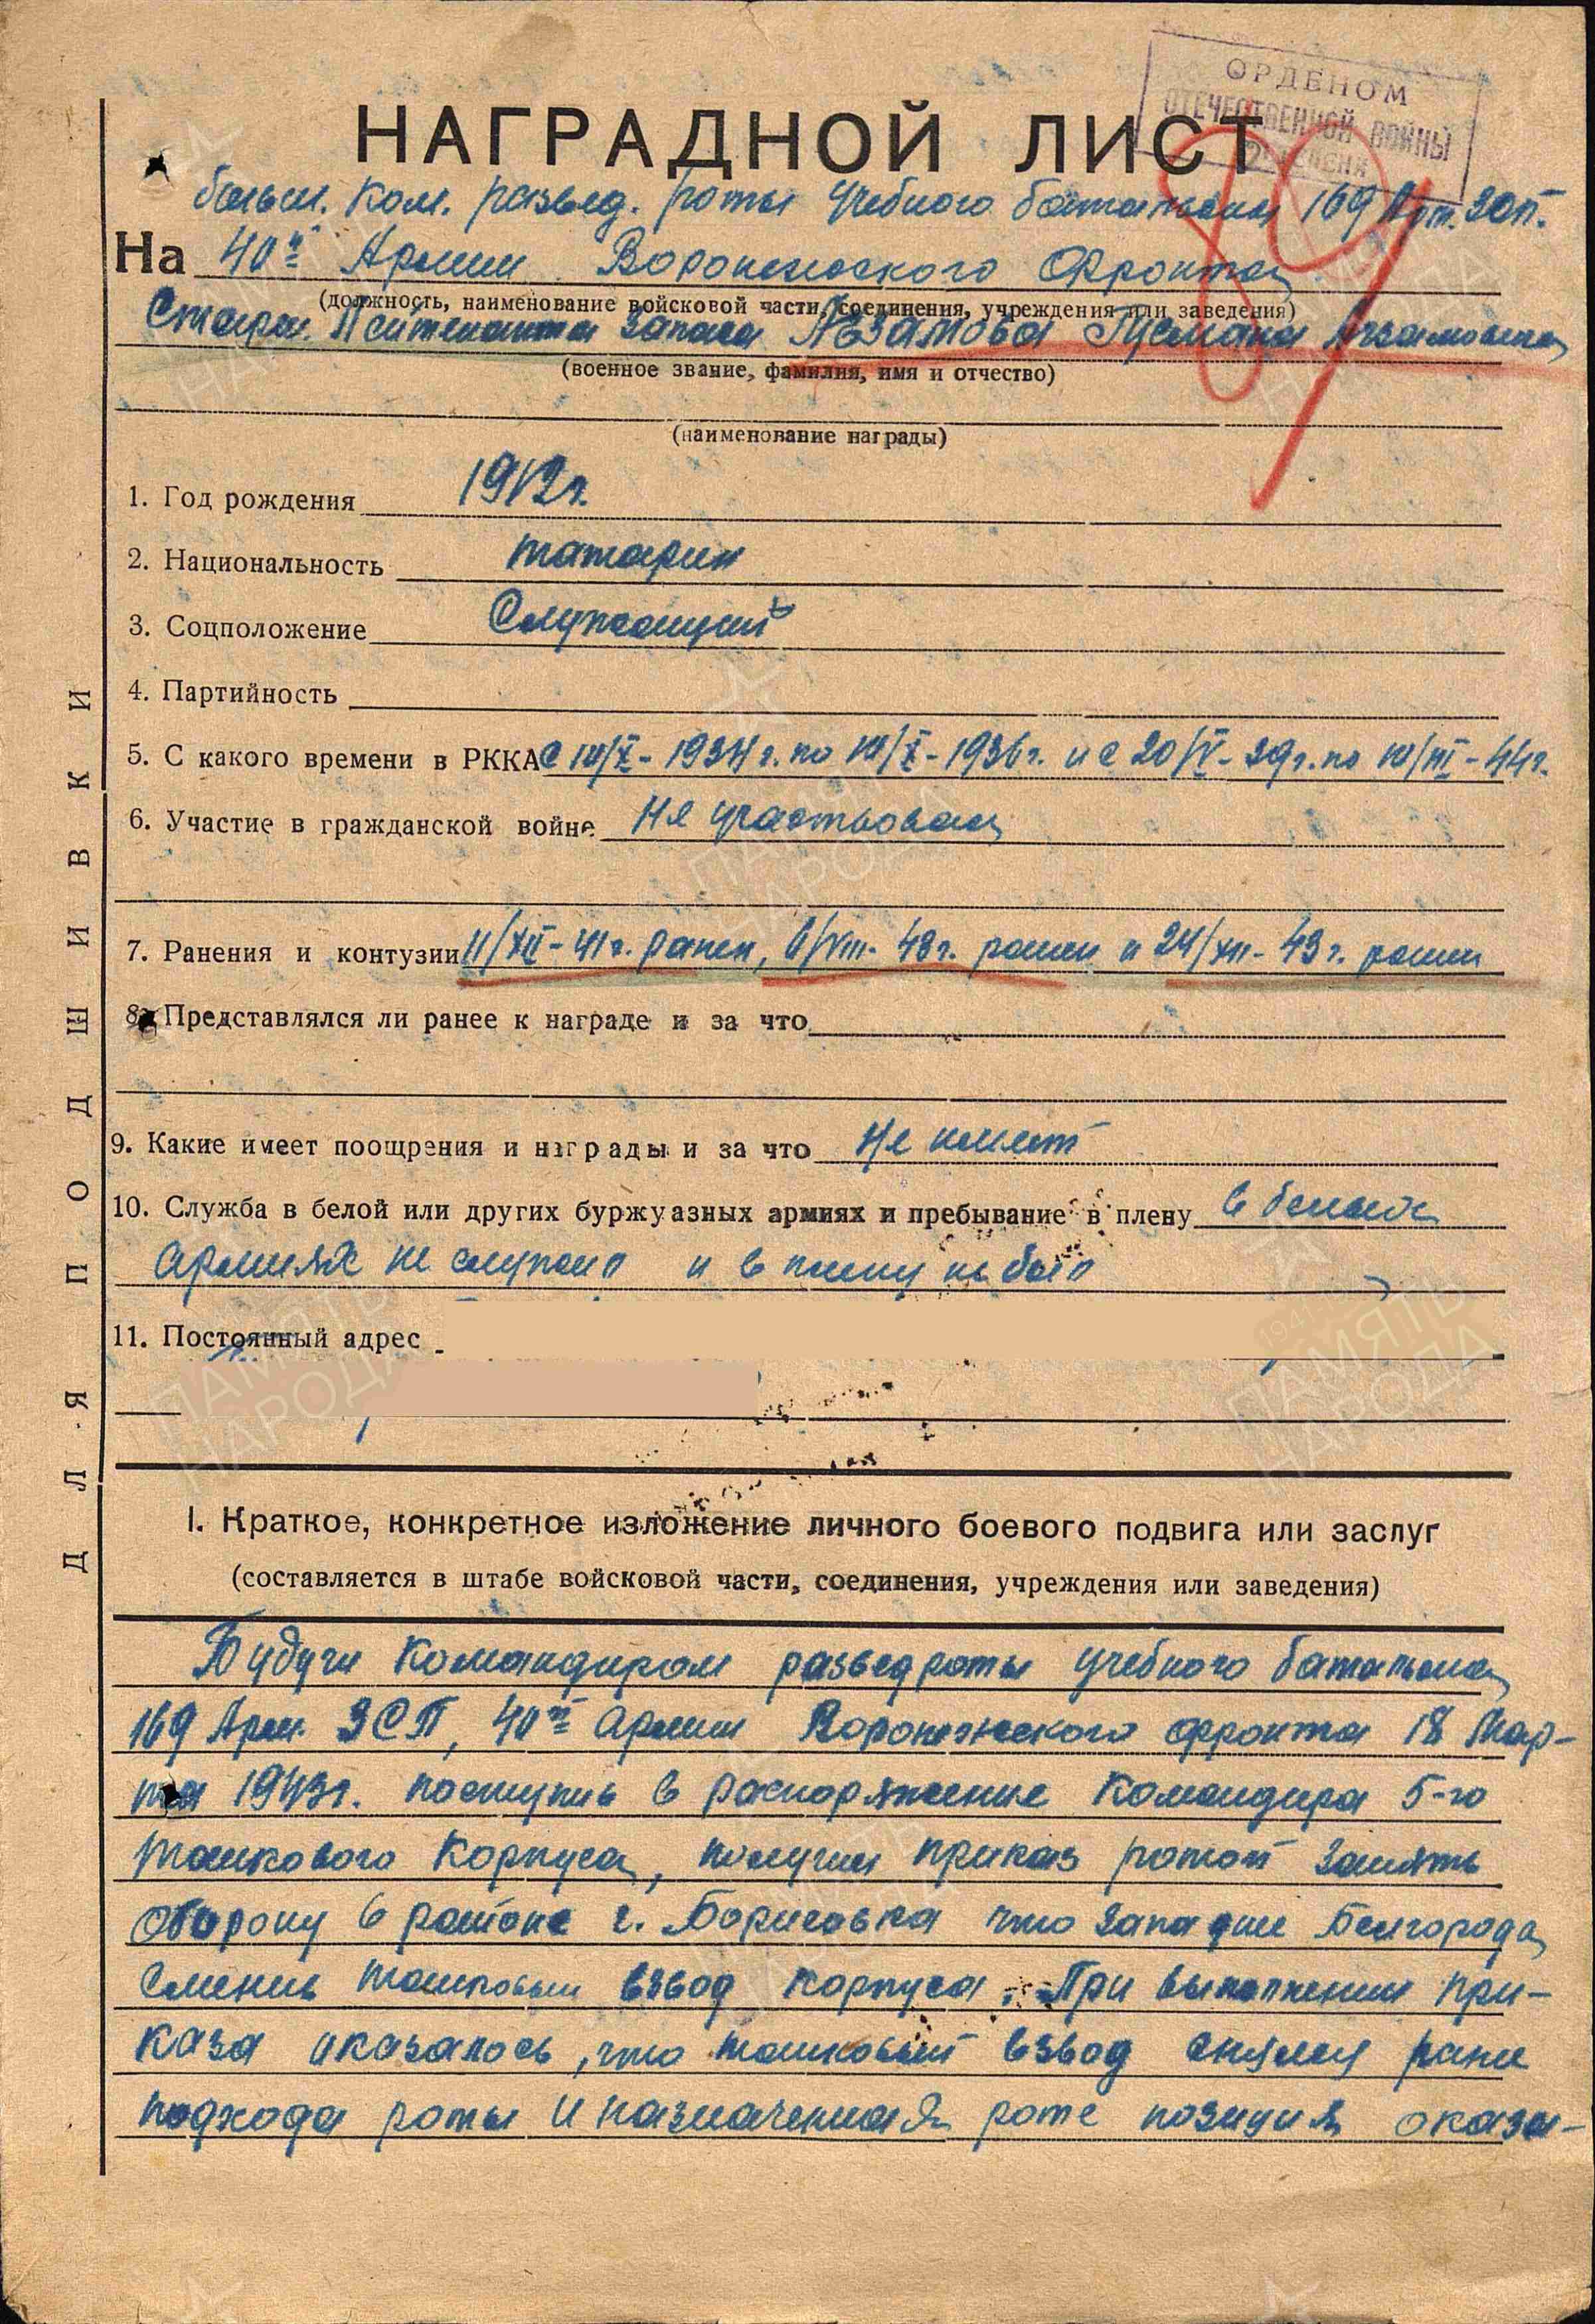 ОРДЕНОМ
ОТЕЧЕСТВЕННОЙ ВОЙНЫ
2 СТЕПЕНИ
НАГРАДНОЙ ЛИСТ
бывш. ком. развед. роты учебного батальона 169
На 40й Армии Воронежского фронта
(должность, наименование войсковой части, соединения, учреждения или заведения)
Старш. Лейтенанта запаса Агзамова Гусмана Агзамовича
(военное звание, фамилия, имя и отчество)
(наименование награды)
1. Год рождения 1912г.
2. Национальность татарин
3. Соцположение Служащий
4. Партийность
5. С какого времени в РККА с 10/X-1934г. по 10/X-1936г. и с 20/IV-39г. по 10/III-44г.
6. Участие в гражданской войне Не участвовал
7. Ранения и контузии 11/XII-41г. ранен, 6/VIII-43г. ранен и 24/XII-43г. ранен
8. Представлялся ли ранее к награде и за что
9. Какие имеет поощрения и награды и за что Не имеет
10. Служба в белой или других буржуазных армиях и пребывание в плену в белых
армиях не служил и в плену не был
11. Постоянный адрес
I. Краткое, конкретное изложение личного боевого подвига или заслуг
(составляется в штабе войсковой части, соединения, учреждения или заведения)
Будучи командиром разведроты учебного батальона
169 Арм. ЗСП, 40й Армии Воронежского фронта 18 Мар-
та 1943г. поступив в распоряжение Командира 5-го
танкового Корпуса, получил приказ ротой занять
оборону в районе г. Борисовка что западнее Белгорода,
сменив танковый взвод корпуса. При выполнении при-
каза оказалось, что танковый взвод снялся ранее
подхода роты и назначенная роте позиция оказа-
ДЛЯ ПОДШИВКИ
ПАМЯТЬ
НАРОДА